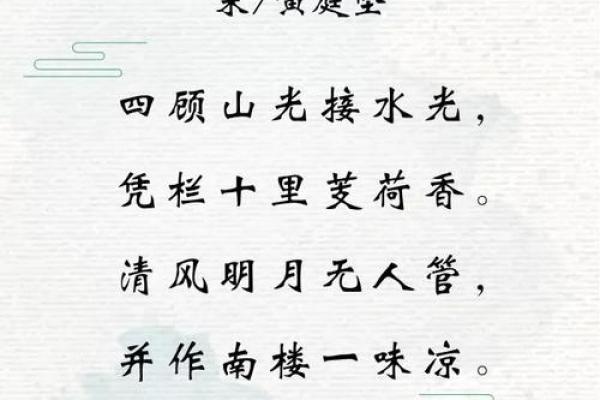 宋/黄庭坚
四顾山光接水光，
凭栏十里芰荷香。
清风明月无人管，
并作南楼一味凉。